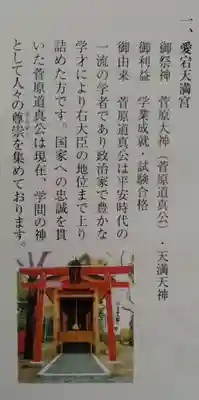 一、愛宕天満宮
御祭神　菅原大神（菅原道真公）・天満天神
御利益　学業成就・試験合格
御由来　菅原道真公は平安時代の
一流の学者であり政治家で豊かな
学才により右大臣の地位まで上り
詰めた方です。国家への忠誠を貫
いた菅原道真公は現在、学問の神
として人々の尊崇を集めております。